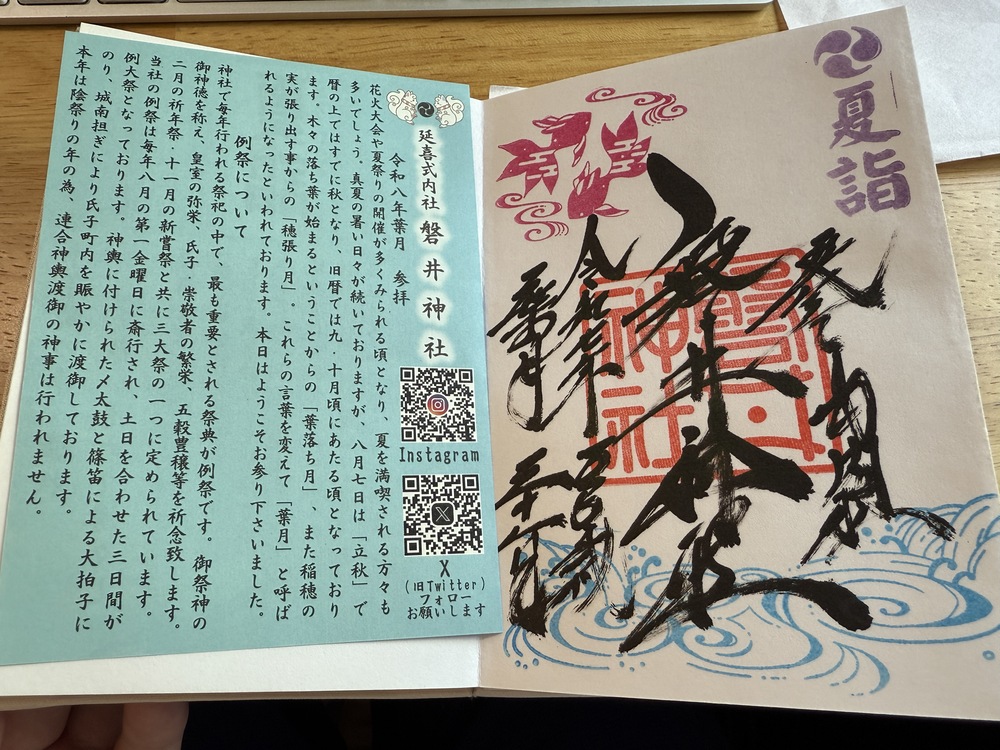 夏詣
延喜式内社
磐井神社
葉月
延喜式内社 磐井神社
Instagram
X
(旧Twitter)
フォロー
お願いします
令和八年葉月 参拝
花火大会や夏祭りの開催が多くみられる頃となり、夏を満喫される方々も
多いでしょう。真夏の暑い日々が続いておりますが、八月七日は「立秋」で
暦の上ではすでに秋となり、旧暦では九・十月頃にあたる頃となっており
ます。木々の落ち葉が始まるということからの「葉落ち月」、また稲穂の
実が張り出す事からの「穂張り月」。これらの言葉を変えて「葉月」と呼ば
れるようになったといわれております。本日はようこそお参り下さいました。
例祭について
神社で毎年行われる祭祀の中で、最も重要とされる祭典が例祭です。御祭神の
御神徳を称え、皇室の弥栄、氏子・崇敬者の繁栄、五穀豊穣等を祈念致します。
二月の祈年祭・十一月の新嘗祭と共に三大祭の一つに定められています。
当社の例祭は毎年八月の第一金曜日に斎行され、土日を合わせた三日間が
例大祭となっております。神輿に付けられた〆太鼓と篠笛による大拍子に
のり、城南担ぎにより氏子町内を賑やかに渡御しております。
本年は陰祭りの年の為、連合神輿渡御の神事は行われません。